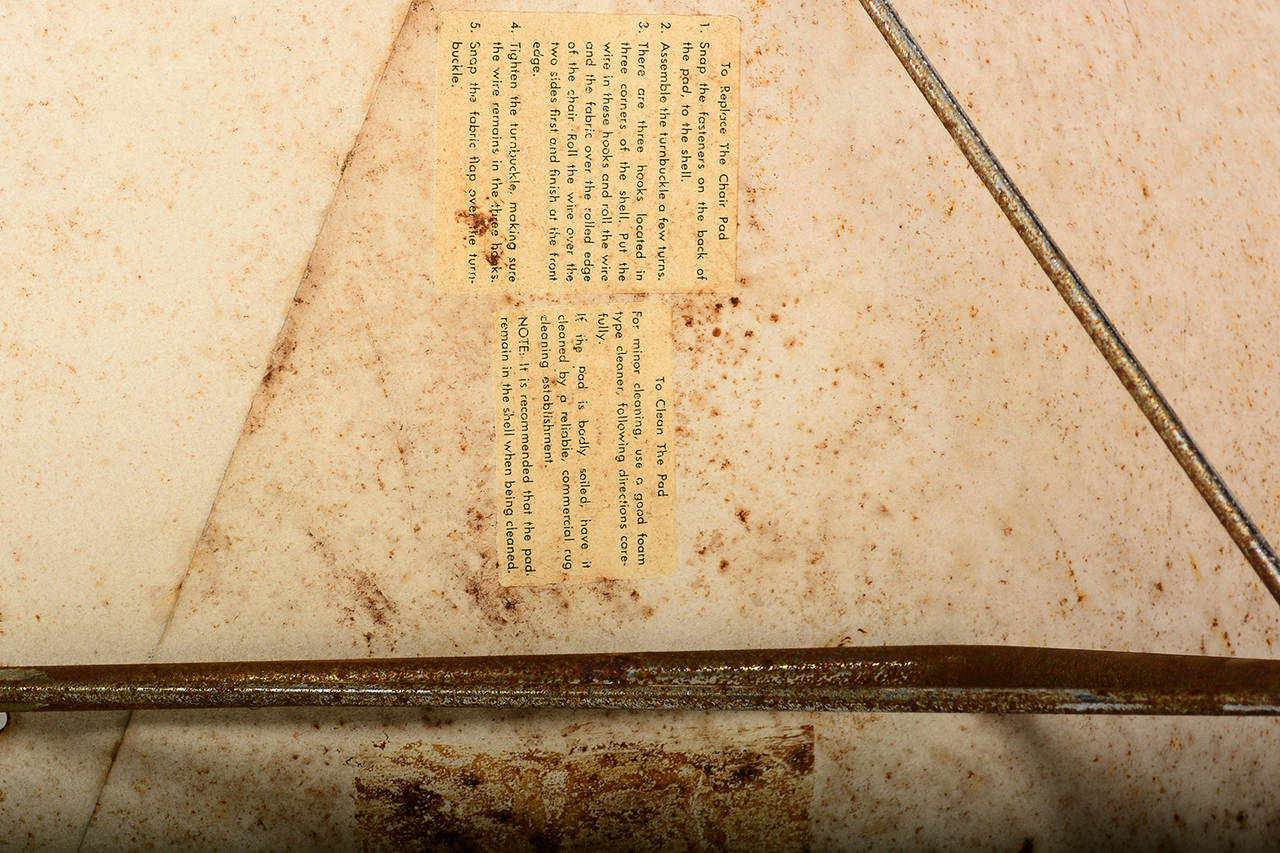 To Replace The Chair Pad
1. Snap the fasteners on the back of
the pad, to the shell.
2. Assemble the turnbuckle a few turns.
3. There are three hooks located in
three corners of the shell. Put the
wire in these hooks and roll the wire
and the fabric over the rolled edge
of the chair. Roll the wire over the
two sides first and finish at the front
edge.
4. Tighten the turnbuckle, making sure
the wire remains in the three hooks.
5. Snap the fabric flap over the turn-
buckle.
To Clean The Pad
For minor cleaning, use a good foam
type cleaner, following directions care-
fully.
If the pad is badly soiled, have it
cleaned by a reliable, commercial rug
cleaning establishment.
NOTE: It is recommended that the pad
remain in the shell when being cleaned.